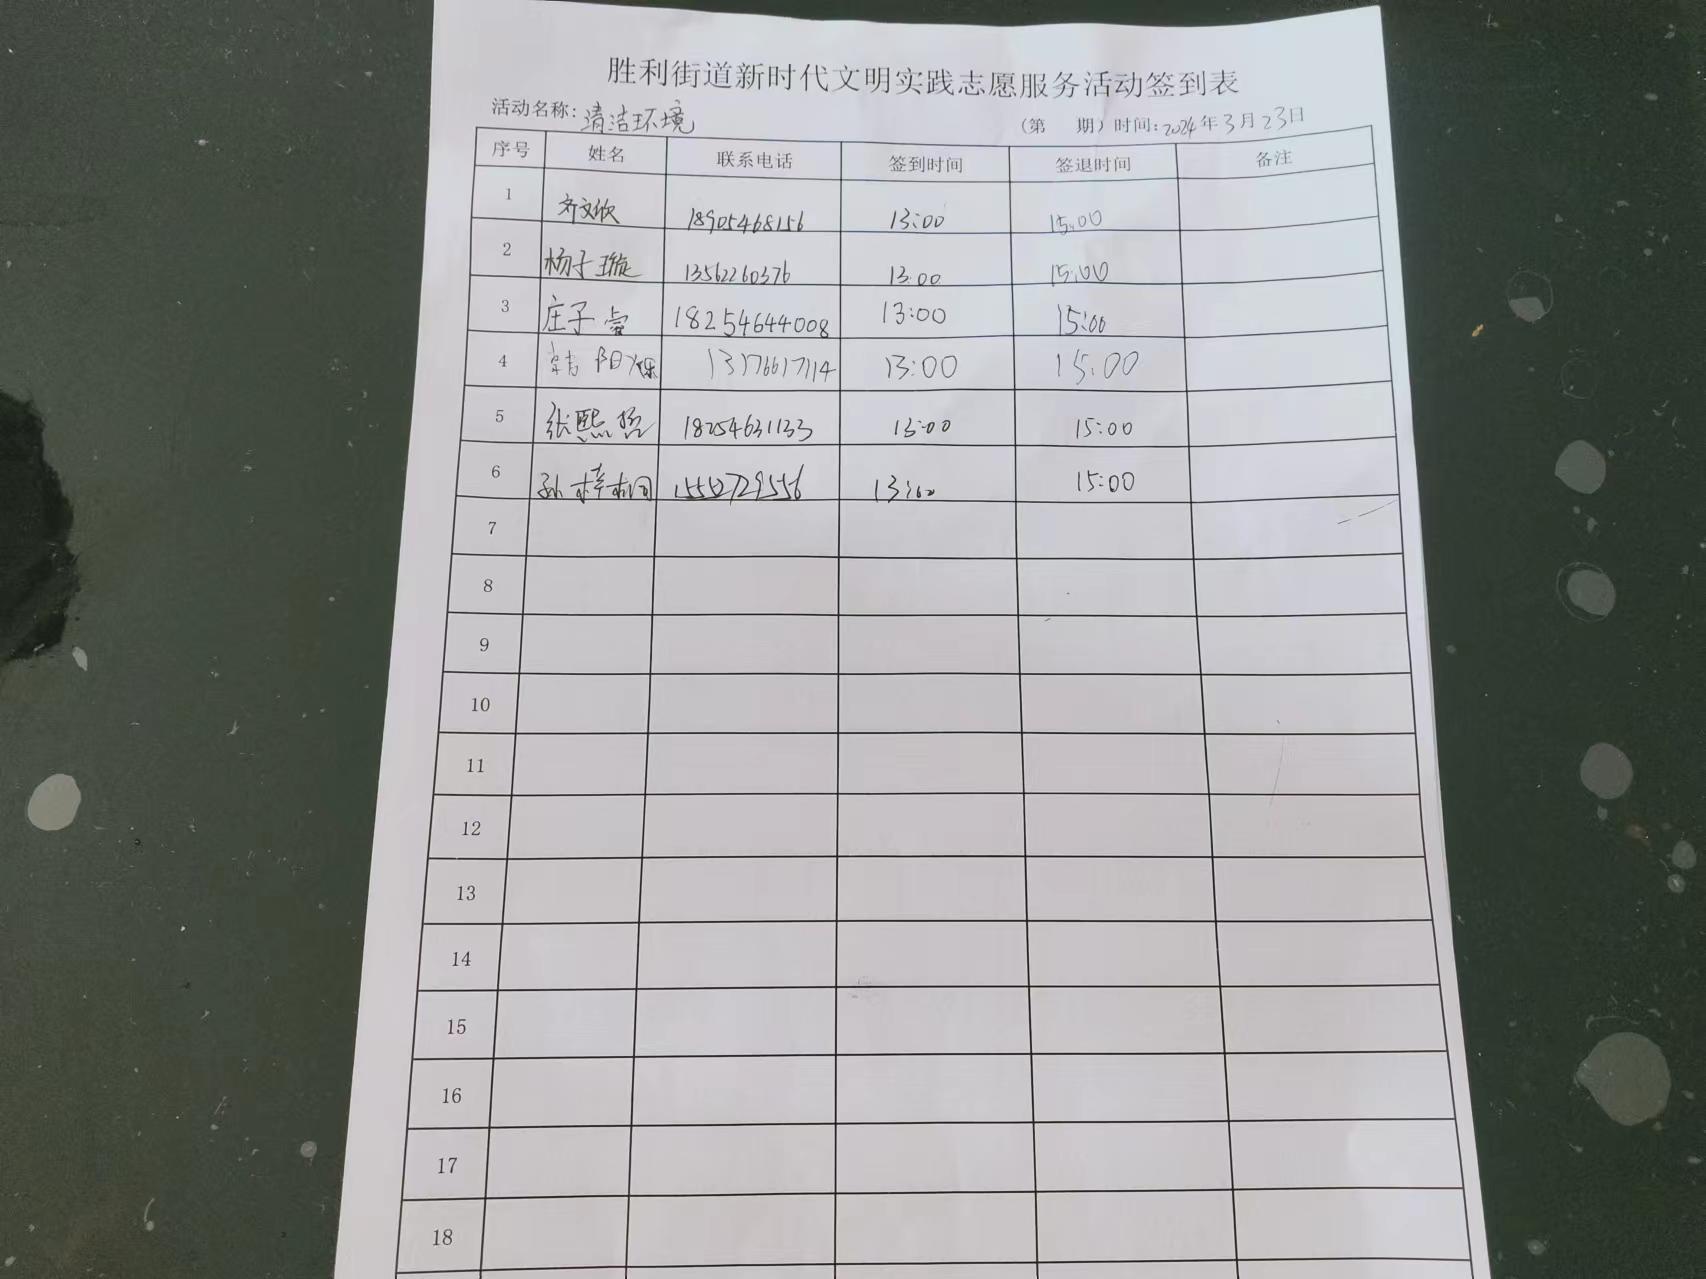 胜利街道新时代文明实践志愿服务活动签到表
活动名称：清洁环境 （第 期）时间：2024年3月23日
序号 姓名 联系电话 签到时间 签退时间 备注
1 齐文欣 18905468156 13:00 15:00
2 杨子璇 13562260376 13:00 15:00
3 庄子睿 18254644008 13:00 15:00
4 韩阳烁 13176617114 13:00 15:00
5 张熙哲 18254631133 13:00 15:00
6 孙梓桐 15552729556 13:00 15:00
7
8
9
10
11
12
13
14
15
16
17
18